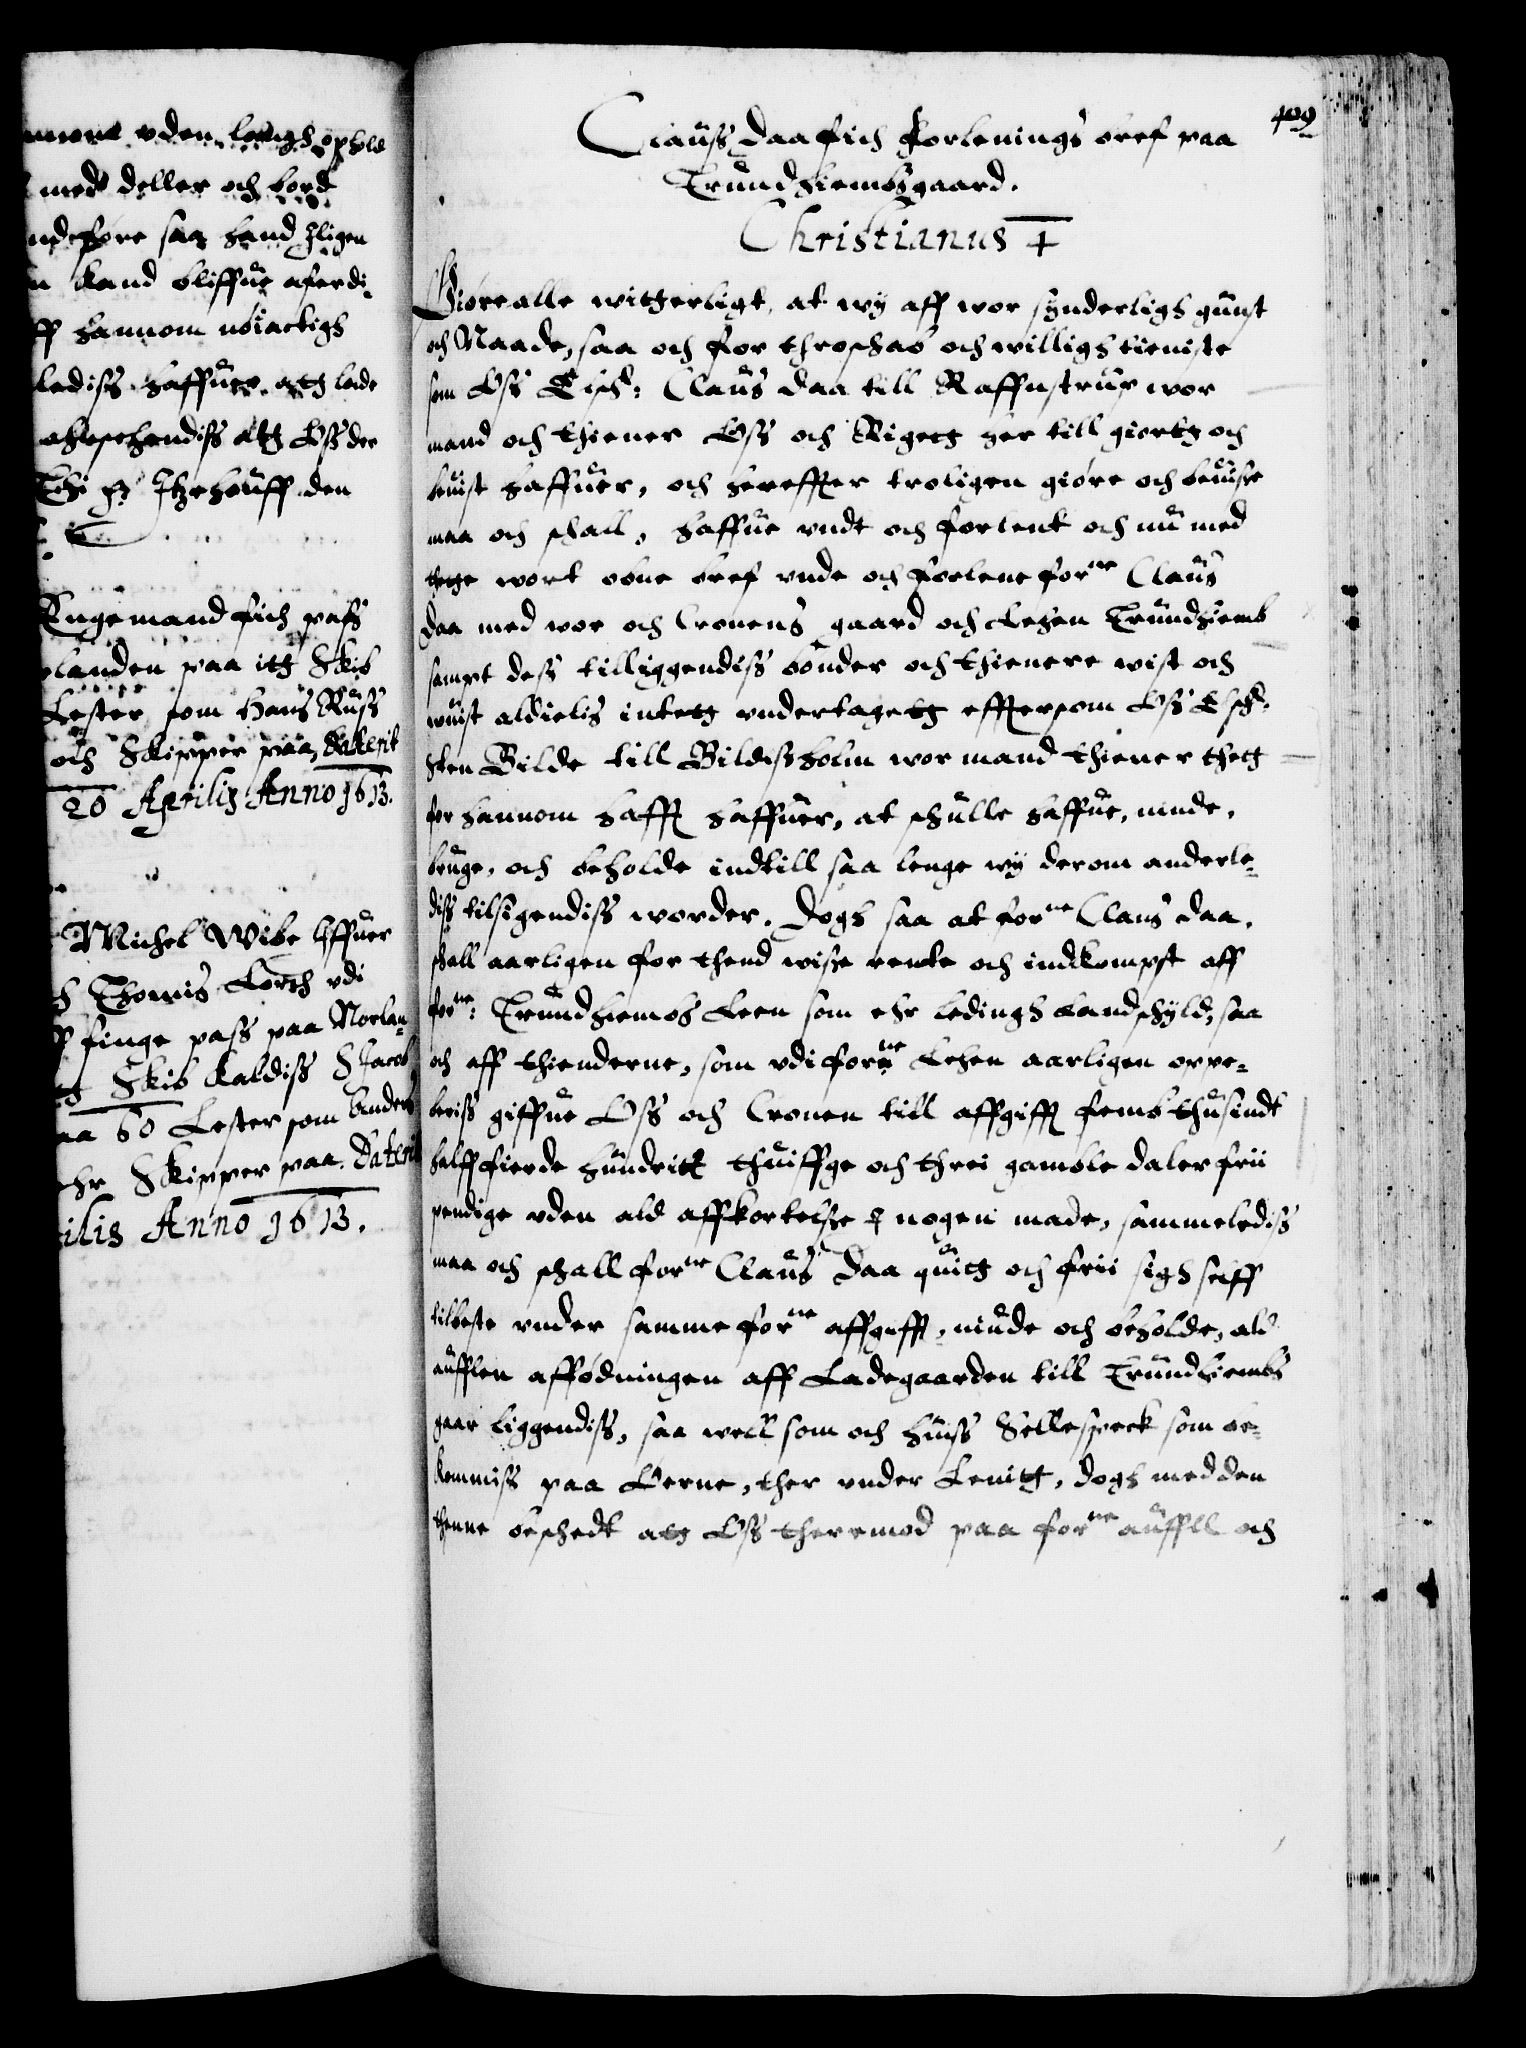 vden lengh ophold
med deller och bord
ndeføre saa hand Iligen
kand bliffue aferdi-
ff hannom nöiactigh
ledis haffuer att lade
att Oss der
Itzehouff den
Engemand fich pass
landen paa itt Skib
Lester som Hans Russ
och Skipper paa, Daterit
20 Aprilis Anno 1613.
Michel Wibe
Thomis Lorch vdi
finge pass paa Norlan-
Skib kaldiss S Jacob
60 Lester som Anders
ehr Skipper paa. Daterit
ilis Anno 1613.
409
Clauss Daa fich Forlenings bref paa
Trundhiembsgaard.
Christianus 4
Giøre alle witterligt, at wy aff wor synderligh gunst
och Naade, saa och for throschab och willigh tieniste
som Oss Elsch: Claus Daa till Raffnstrup wor
mand och thiener Oss och Rigett her till giortt och
beuist haffuer, och hereffter troligen giøre och beuisse
maa och schall, haffue vndt och forlent och nu med
thette wort obne bref vnde och forlene forne Claus
Daa med wor och Cronens gaard och Lehen Trundhiemb
sampt dess tilliggendiss bønder och thienere wist och
wuist aldielis intett vndertagett effttersom Oss Elsch:
Sten Bilde till Bildissholm wor mand thiener thett
for hannom hafft haffuer, at schulle haffue, niude,
bruge, och beholde indtill saa lenge wy derom anderle-
diss tilsigendiss worder. Dogh saa at forne Claus Daa,
schall aarligen for thend wisse rente och indkompst aff
forne: Trundhiembs Leen som ehr ledingh Landschyld, saa
och aff thienderne, som vdi forne Lehen aarligen oppe-
beriss giffue Oss och Cronen till affgifft femb thusindt
halffierde hundritt thuiffge och threi gamble daler frii
pendige vden ald affkortelsse I nogen made, sammelediss
maa och schall forne Claus Daa quitt och frii sigh selff
tilbeste vnder samme forne affgifft, niude och beholde, ald
aufflen affødningen aff Ladegaarden till Trundhiembs
gaar liggendiss, saa well som och huiss Sellespeck som be-
kommiss paa Øerne, ther vnder Lenitt, dogh med den
thenne beschedt att Oss theremod paa forne auffll och